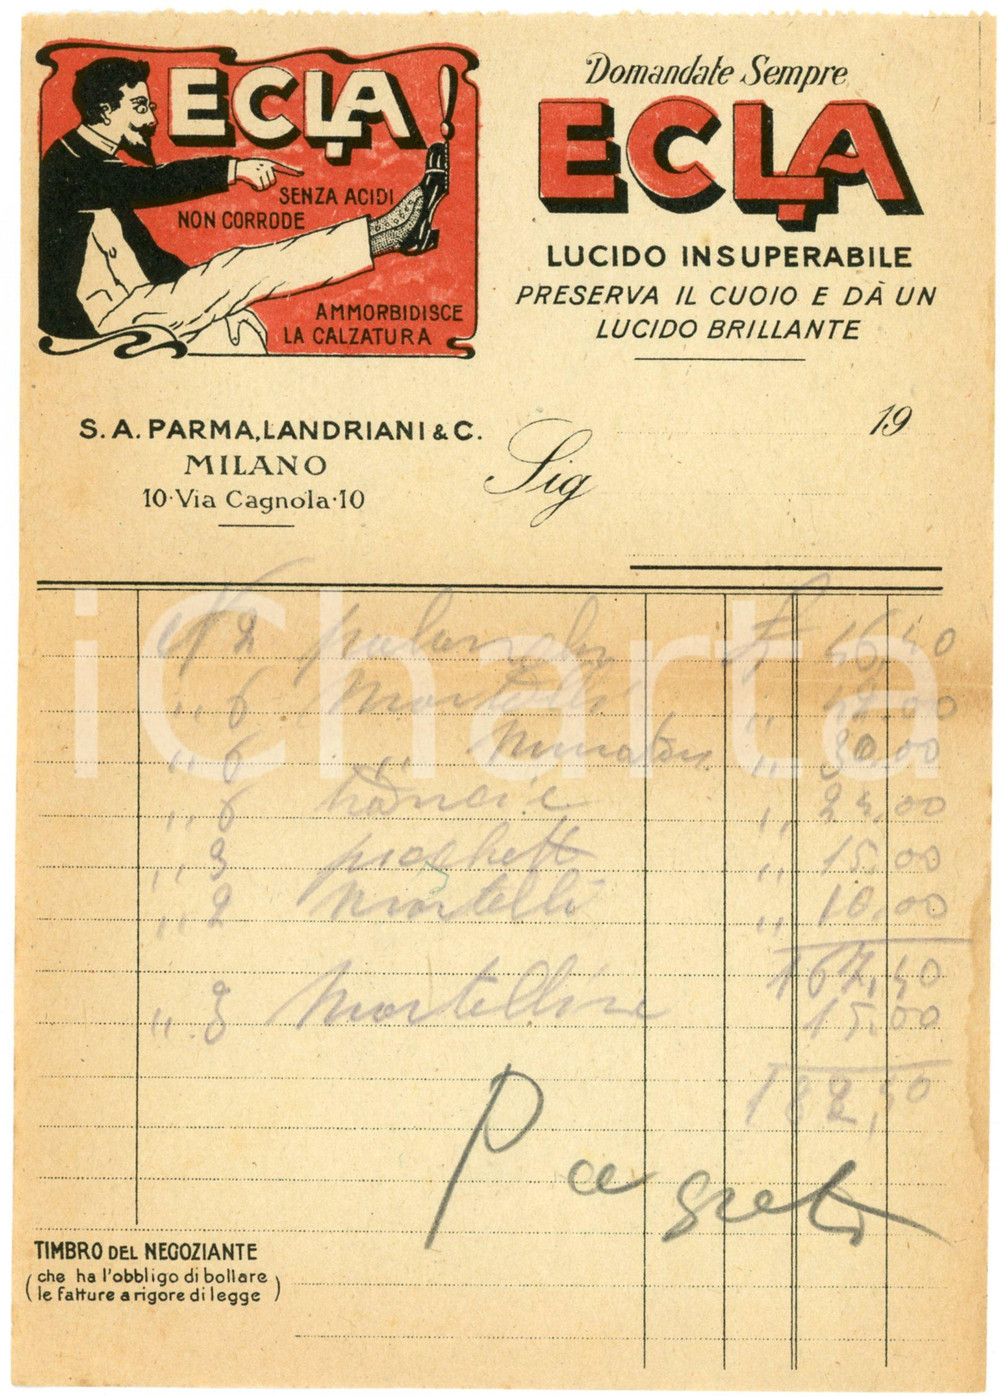 ECLA!
SENZA ACIDI
NON CORRODE
AMMORBIDISCE
LA CALZATURA
Domandate Sempre
ECLA
LUCIDO INSUPERABILE
PRESERVA IL CUOIO E DÀ UN
LUCIDO BRILLANTE
S.A. PARMA, LANDRIANI & C.
MILANO
10·Via Cagnola·10
19
Sig
iCharta
N 2 £ 46,40
" 6 Martelli "
" 6 " " 30,00
" 6 " 24,00
" 3 picchetti " 15,00
" 2 Martelli " 10,00
167,40
" 3 Martelline 15,00
182,40
Pagato
TIMBRO DEL NEGOZIANTE
(che ha l'obbligo di bollare
le fatture a rigore di legge)